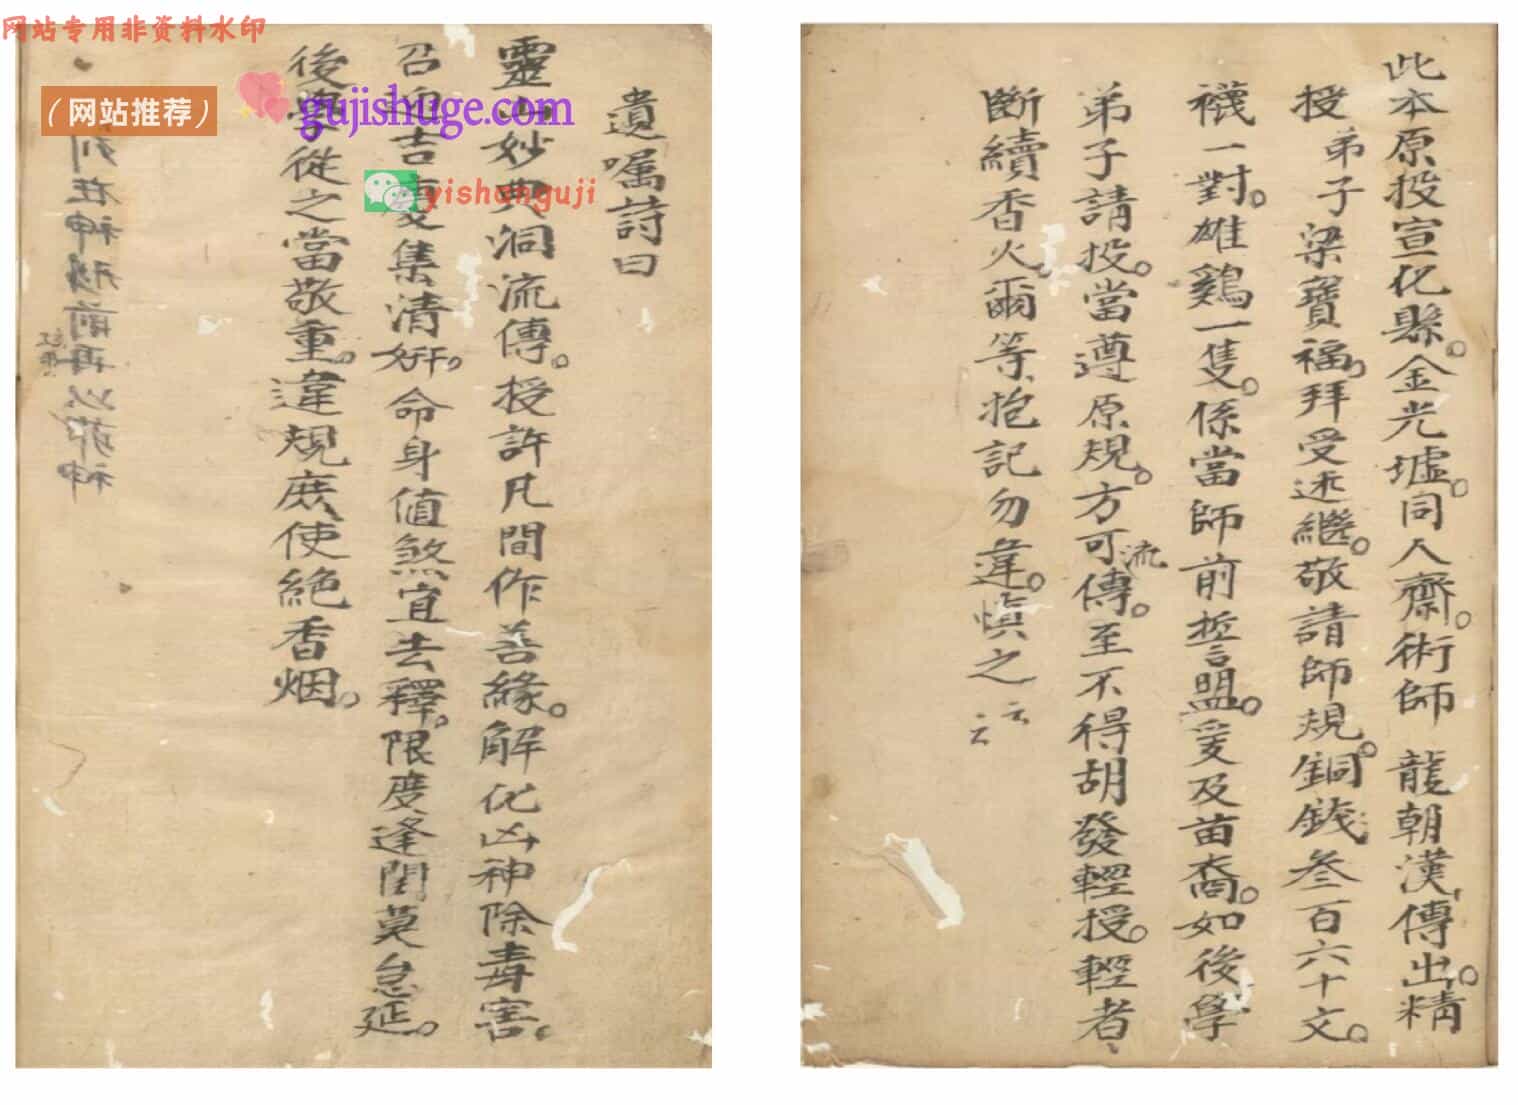 此本原投宣化縣。金光墟。同人齋。術師 龍朝漢傳出。精
授 弟子梁寶福。拜受述繼。敬請師規。銅錢叁百六十文。
襪一對。雄鷄一隻。係當師前誓盟。爰及苗裔。如後學
弟子請投。當遵原規。方可流傳。至不得胡發輕授。輕者
斷續香火爾等抱記勿違。慎之 云云
遺嘱詩曰
靈山妙典洞流傳。授許凡間作善緣。解化凶神除毒害。
召 吉 集清妍。命身值煞宜去釋。限度逢閏莫怠延。
後學從之當敬重。違規庶使絕香烟。
网站专用非资料水印
(网站推荐)
gujishuge.com
yishanguji